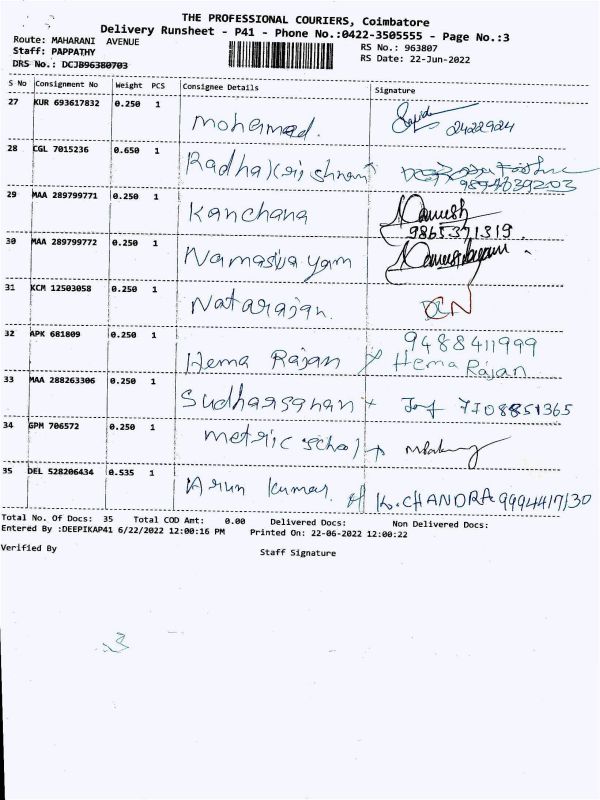 THE PROFESSIONAL COURIERS, Coimbatore
Delivery Runsheet - P41 - Phone No.:0422-3505555 - Page No.:3
Route: MAHARANI AVENUE
Staff: PAPPATHY
DRS No.: DCJB96380703
RS No.: 963807
RS Date: 22-Jun-2022
S No Consignment No Weight PCS Consignee Details Signature
27 KUR 693617832 0.250 1 Mohammad. 2422924
28 CGL 7015236 0.650 1 Radhakrishnan
29 MAA 289799771 0.250 1 Kanchana
9865371319.
30 MAA 289799772 0.250 1 Namasivayam
31 KCM 12503058 0.250 1 Natarajan. DCN
32 APK 681809 0.250 1 Hema Rajan 9488411999
Hema Rajan
33 MAA 288263306 0.250 1 Sudharsanan 7708851365
34 GPM 706572 0.250 1 metric school
35 DEL 528206434 0.535 1 Arun Kumar. K.CHANDRA 9994417130
Total No. Of Docs: 35 Total COD Amt: 0.00 Delivered Docs: Non Delivered Docs:
Entered By :DEEPIKAP41 6/22/2022 12:00:16 PM Printed On: 22-06-2022 12:00:22
Verified By Staff Signature
3